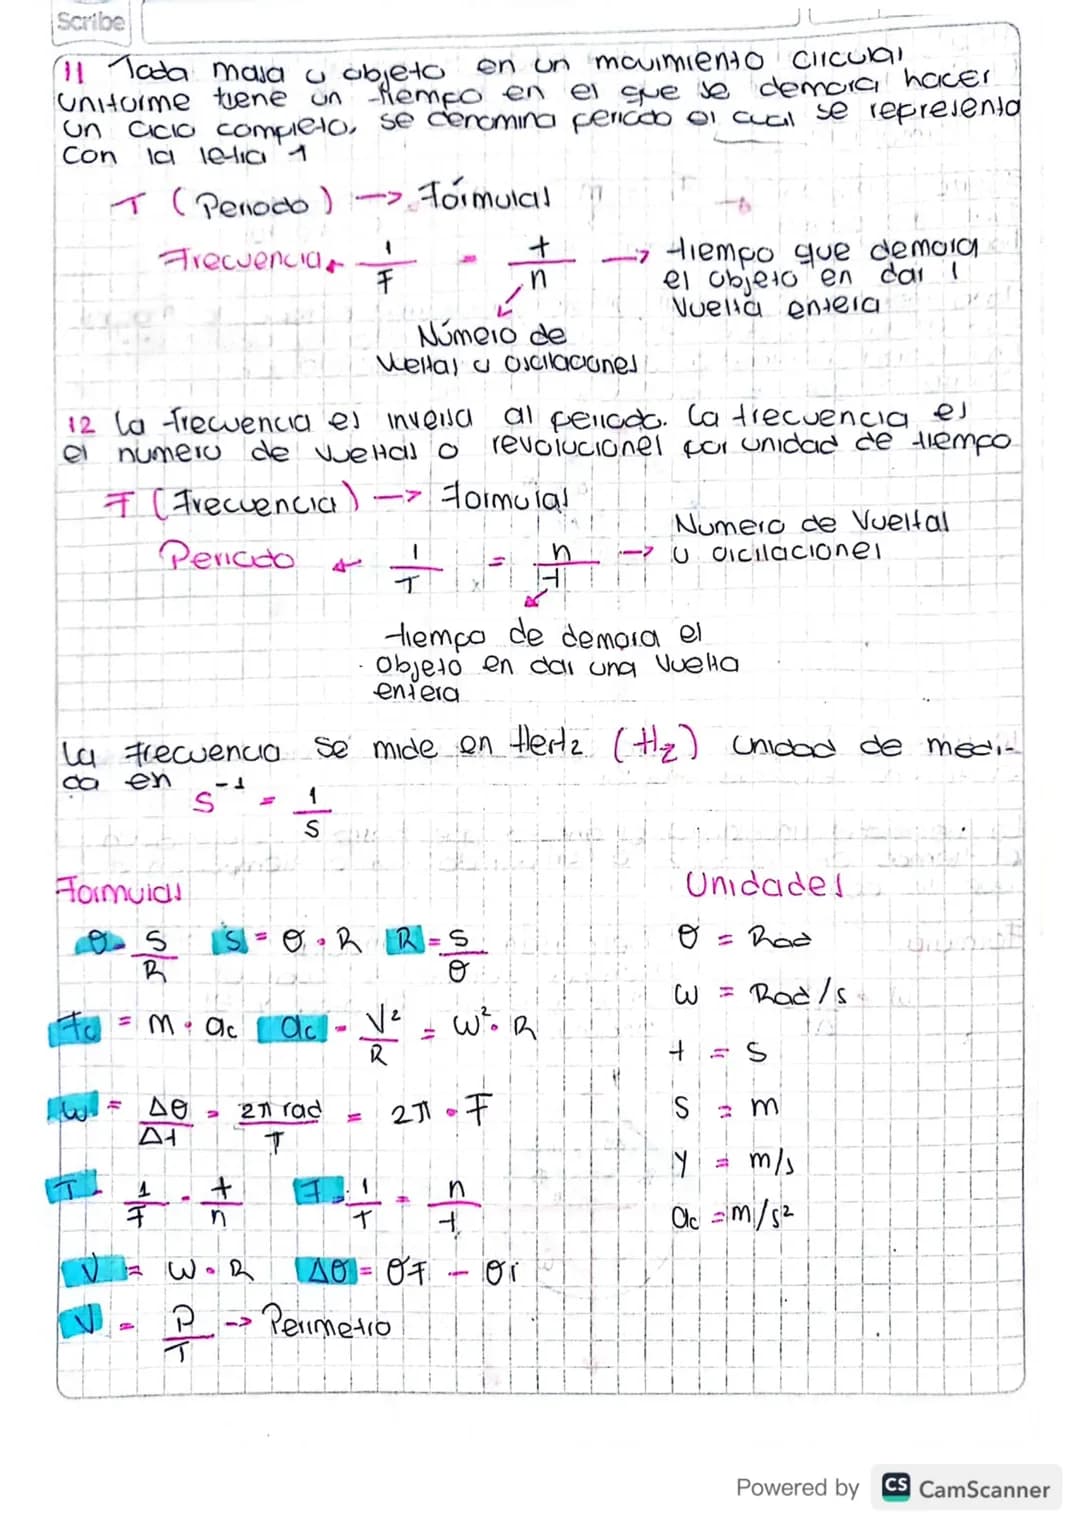 Scribe
11 Toda masa u objeto en un movimiento circular
uniforme tiene un tiempo en el que se demora hacer
un ciclo completo, se denomina periodo el cual se representa
con la letra T
T (Periodo) → Fórmulas
Frecuencia ← 1/F = t/n → tiempo que demora
el objeto en dar 1
vuelta entera
Número de
vueltas u oscilaciones
12 La frecuencia es inversa al periodo. La frecuencia es
el numero de vueltas o revoluciones por unidad de tiempo
F (Frecuencia) → Formulas
Numero de Vueltas
Periodo ← 1/T = n/t → u oscilaciones
tiempo de demora el
objeto en dar una vuelta
entera
La frecuencia se mide en Hertz (Hz) unidad de medi-
da en
s⁻¹ = 1/s
Formulas
Unidades
θ = S/R S = θ · R R = S/θ
θ = Rad
Fc = m · ac ac = V²/R = W² · R
W = Rad/s
t = s
W = Δθ/Δt = 2π rad/T = 2π · F
S = m
T = 1/F = t/n F = 1/T = n/t
V = m/s
ac = m/s²
V = W · R Δθ = θF - θi
V = P/T → Perimetro
Powered by CS CamScanner